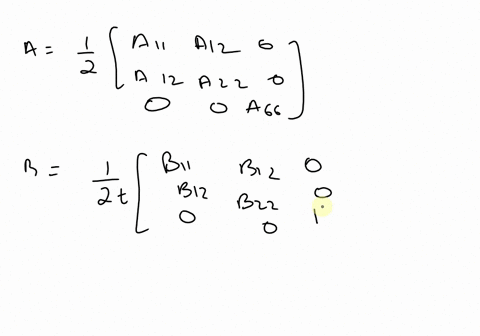 A = 1/2 [ A11 A12 0
A12 A22 0
0 0 A66 ]
B = 1/2t [ B11 B12 0
B12 B22 0
0 0